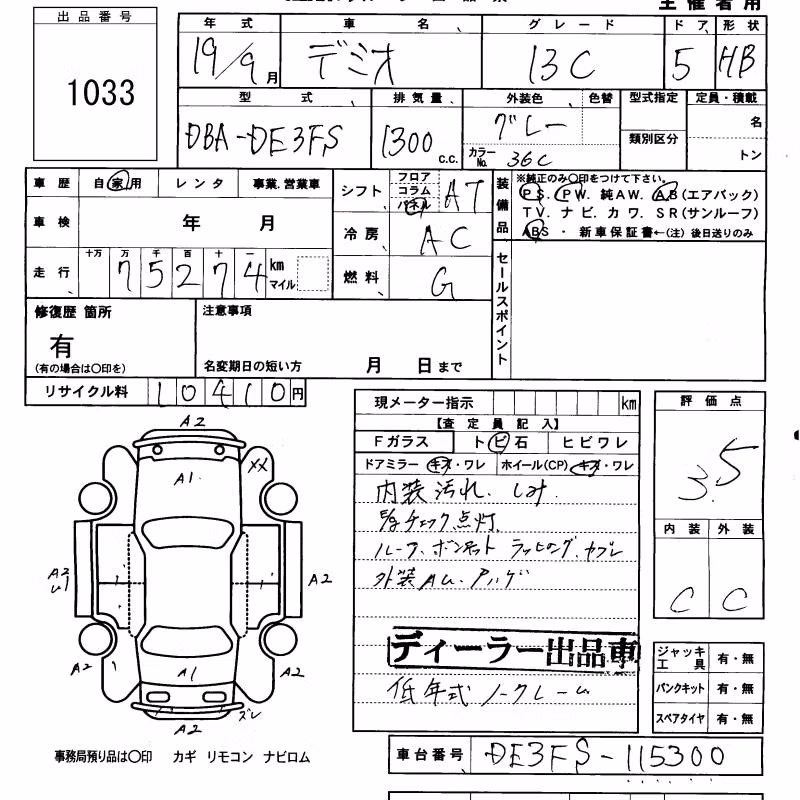 主催者用
出品番号
1033
年式 車名 グレード ドア 形状
19/9月 デミオ 13C 5 HB
型式 排気量 外装色 色替 型式指定 定員・積載
DBA-DE3FS 1300 c.c. グレー 名
類別区分
カラーNo. 36C トン
車歴 自家用 レンタ 事業.営業車
シフト フロア コラム パネル AT
装備品
※純正のみ〇印をつけて下さい。
PS. PW. 純AW. AB(エアバック)
TV. ナビ. カワ. SR(サンルーフ)
ABS ・ 新車保証書←(注) 後日送りのみ
車検 年 月
冷房 AC
走行 十万 万 千 百 十 一
75274 km マイル
燃料 G
セールスポイント
修復歴 箇所
有
(有の場合は〇印を)
注意事項
名変期日の短い方 月 日まで
リサイクル料 10410円
現メーター指示 km
【査定員記入】
Fガラス トビ石 ヒビワレ
ドアミラー キズ・ワレ ホイール(CP) キズ・ワレ
内装汚れ. しみ
チェック点灯
ルーフ、ボンネット ラッピング ヤブレ
外装
ディーラー出品車
低年式 ノークレーム
評価点
3.5
内装 外装
C C
ジャッキ工具 有・無
パンクキット 有・無
スペアタイヤ 有・無
A2
A1
XX
A2
A2
A2
A1
A2
ズレ
A2
事務局預り品は〇印 カギ リモコン ナビロム
車台番号 DE3FS-115300